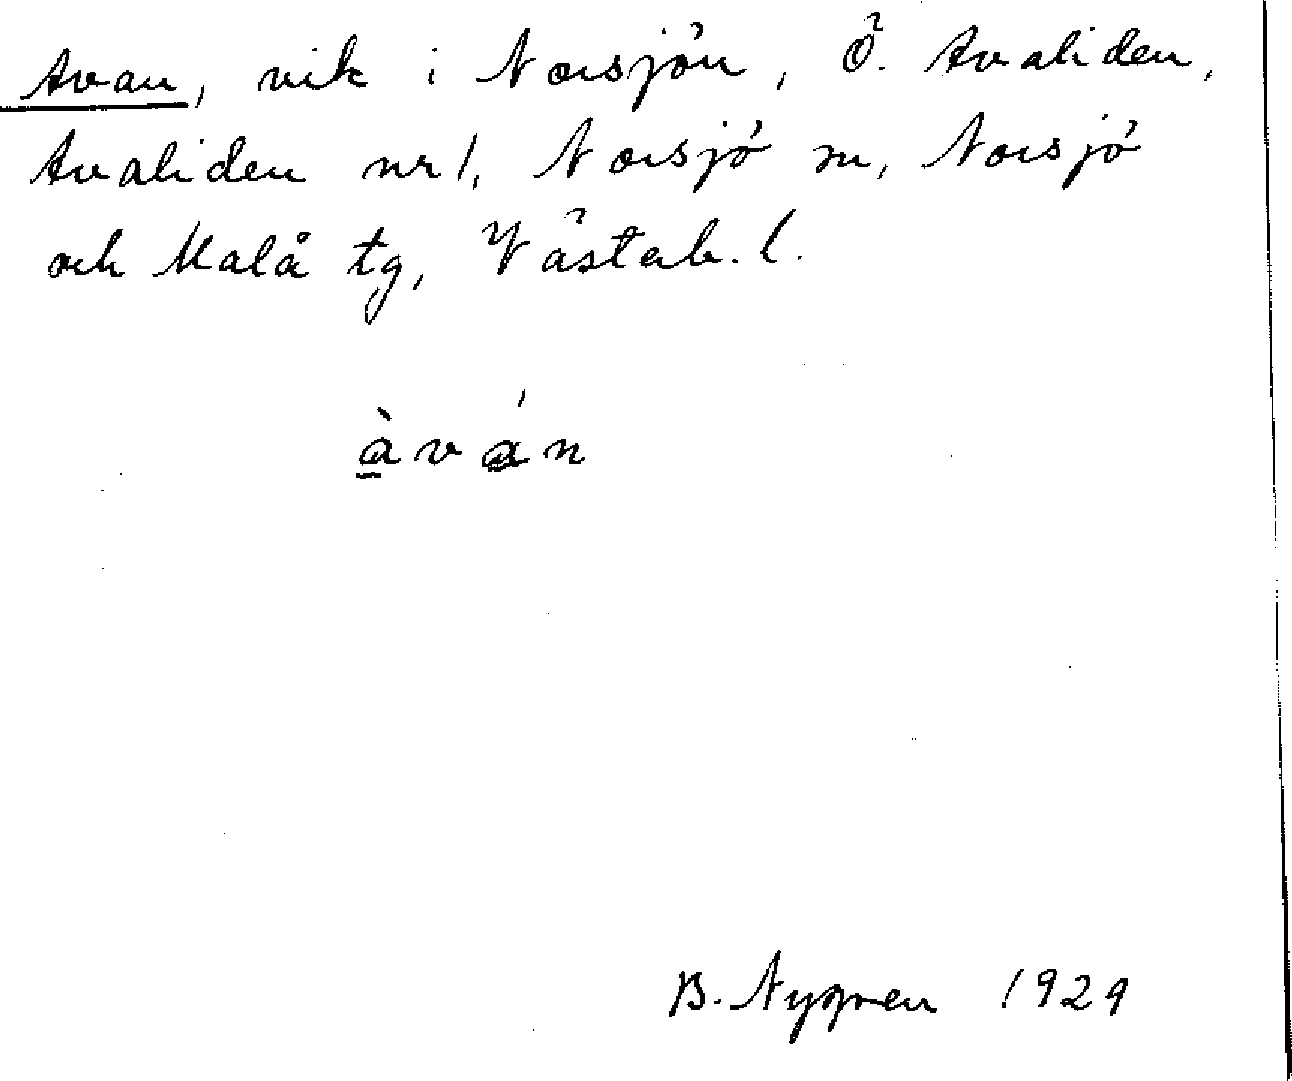 Avan, vik i Norsjön, Ö. Avaliden,
Avaliden nr 1, Norsjö sn, Norsjö
och Malå tg, Västerb. l.
àván
B. Nygren 1929